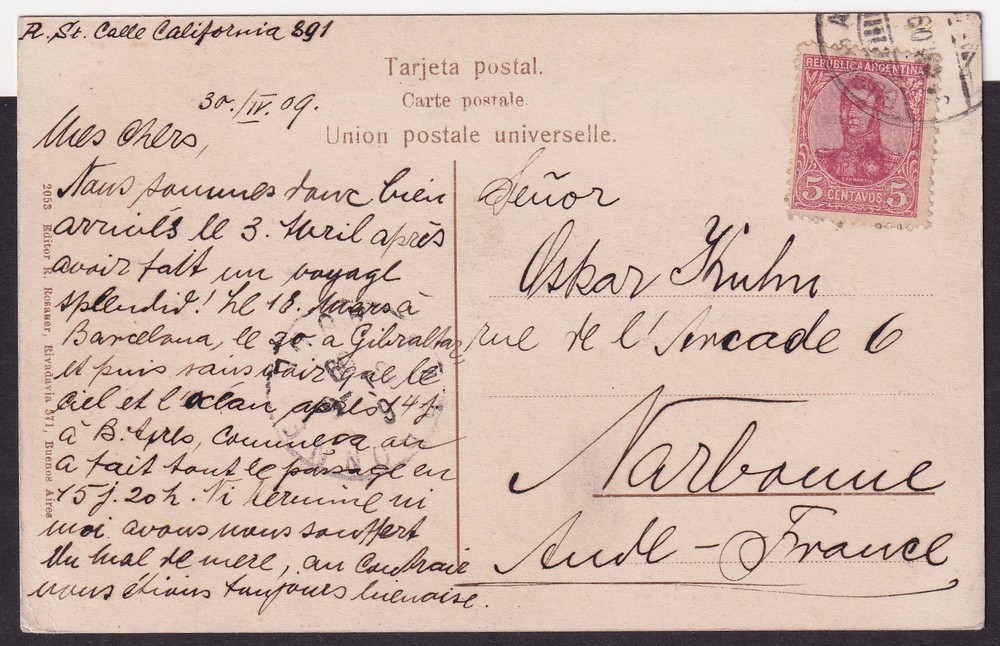 R. St. Calle California 891
Tarjeta postal.
Carte postale.
Union postale universelle.
30./IV. 09.
Mes chers,
Nous sommes donc bien
arrivés le 3. Avril après
avoir fait un voyage
splendid! Le 18. Mars à
Barcelona, le 20. à Gibraltar
et puis sans voir que le
ciel et l'océan après 14 j.
à B. Ayres, comme ça on
a fait tout le passage en
15 j. 20 h. Ni ni
moi avons nous souffert
du mal de mere, au contraire
nous étions toujours bienaise.
Señor
Oskar Kuhn
rue de l'Arcade 6
Narbonne
Aude - France
REPUBLICA ARGENTINA
SAN MARTIN
5 CENTAVOS 5
2053 Editor R. Rosauer, Rivadavia 571, Buenos Aires